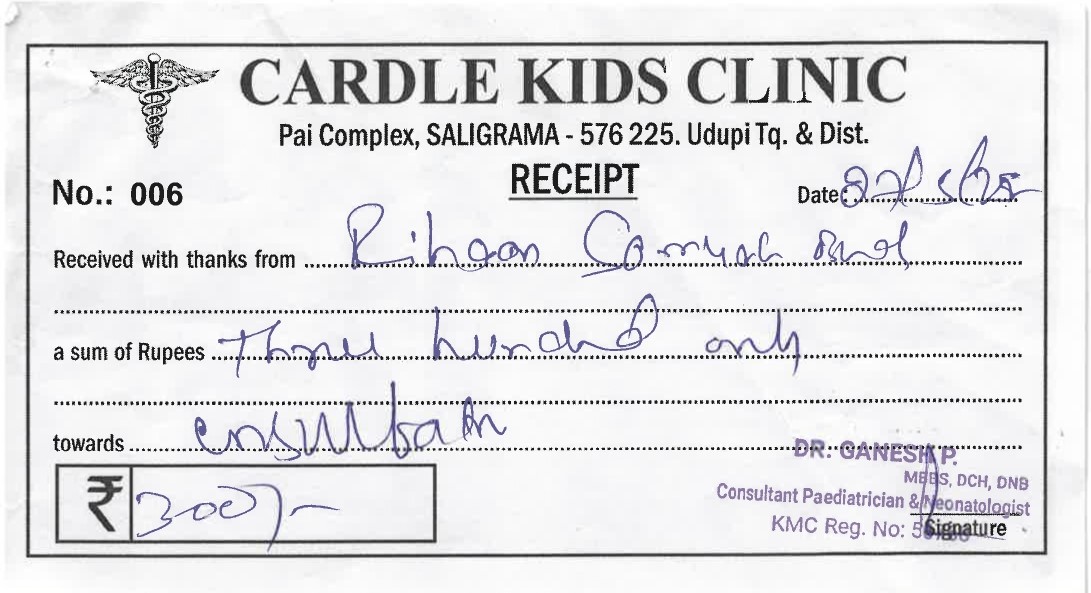 CARDLE KIDS CLINIC
Pai Complex, SALIGRAMA - 576 225. Udupi Tq. & Dist.
RECEIPT
No.: 006
Date: 27/5/25
Received with thanks from Rihaan
a sum of Rupees Three hundred only
towards
DR. GANESH P.
MBBS, DCH, DNB
Consultant Paediatrician & Neonatologist
KMC Reg. No:
Signature
₹ 300/-